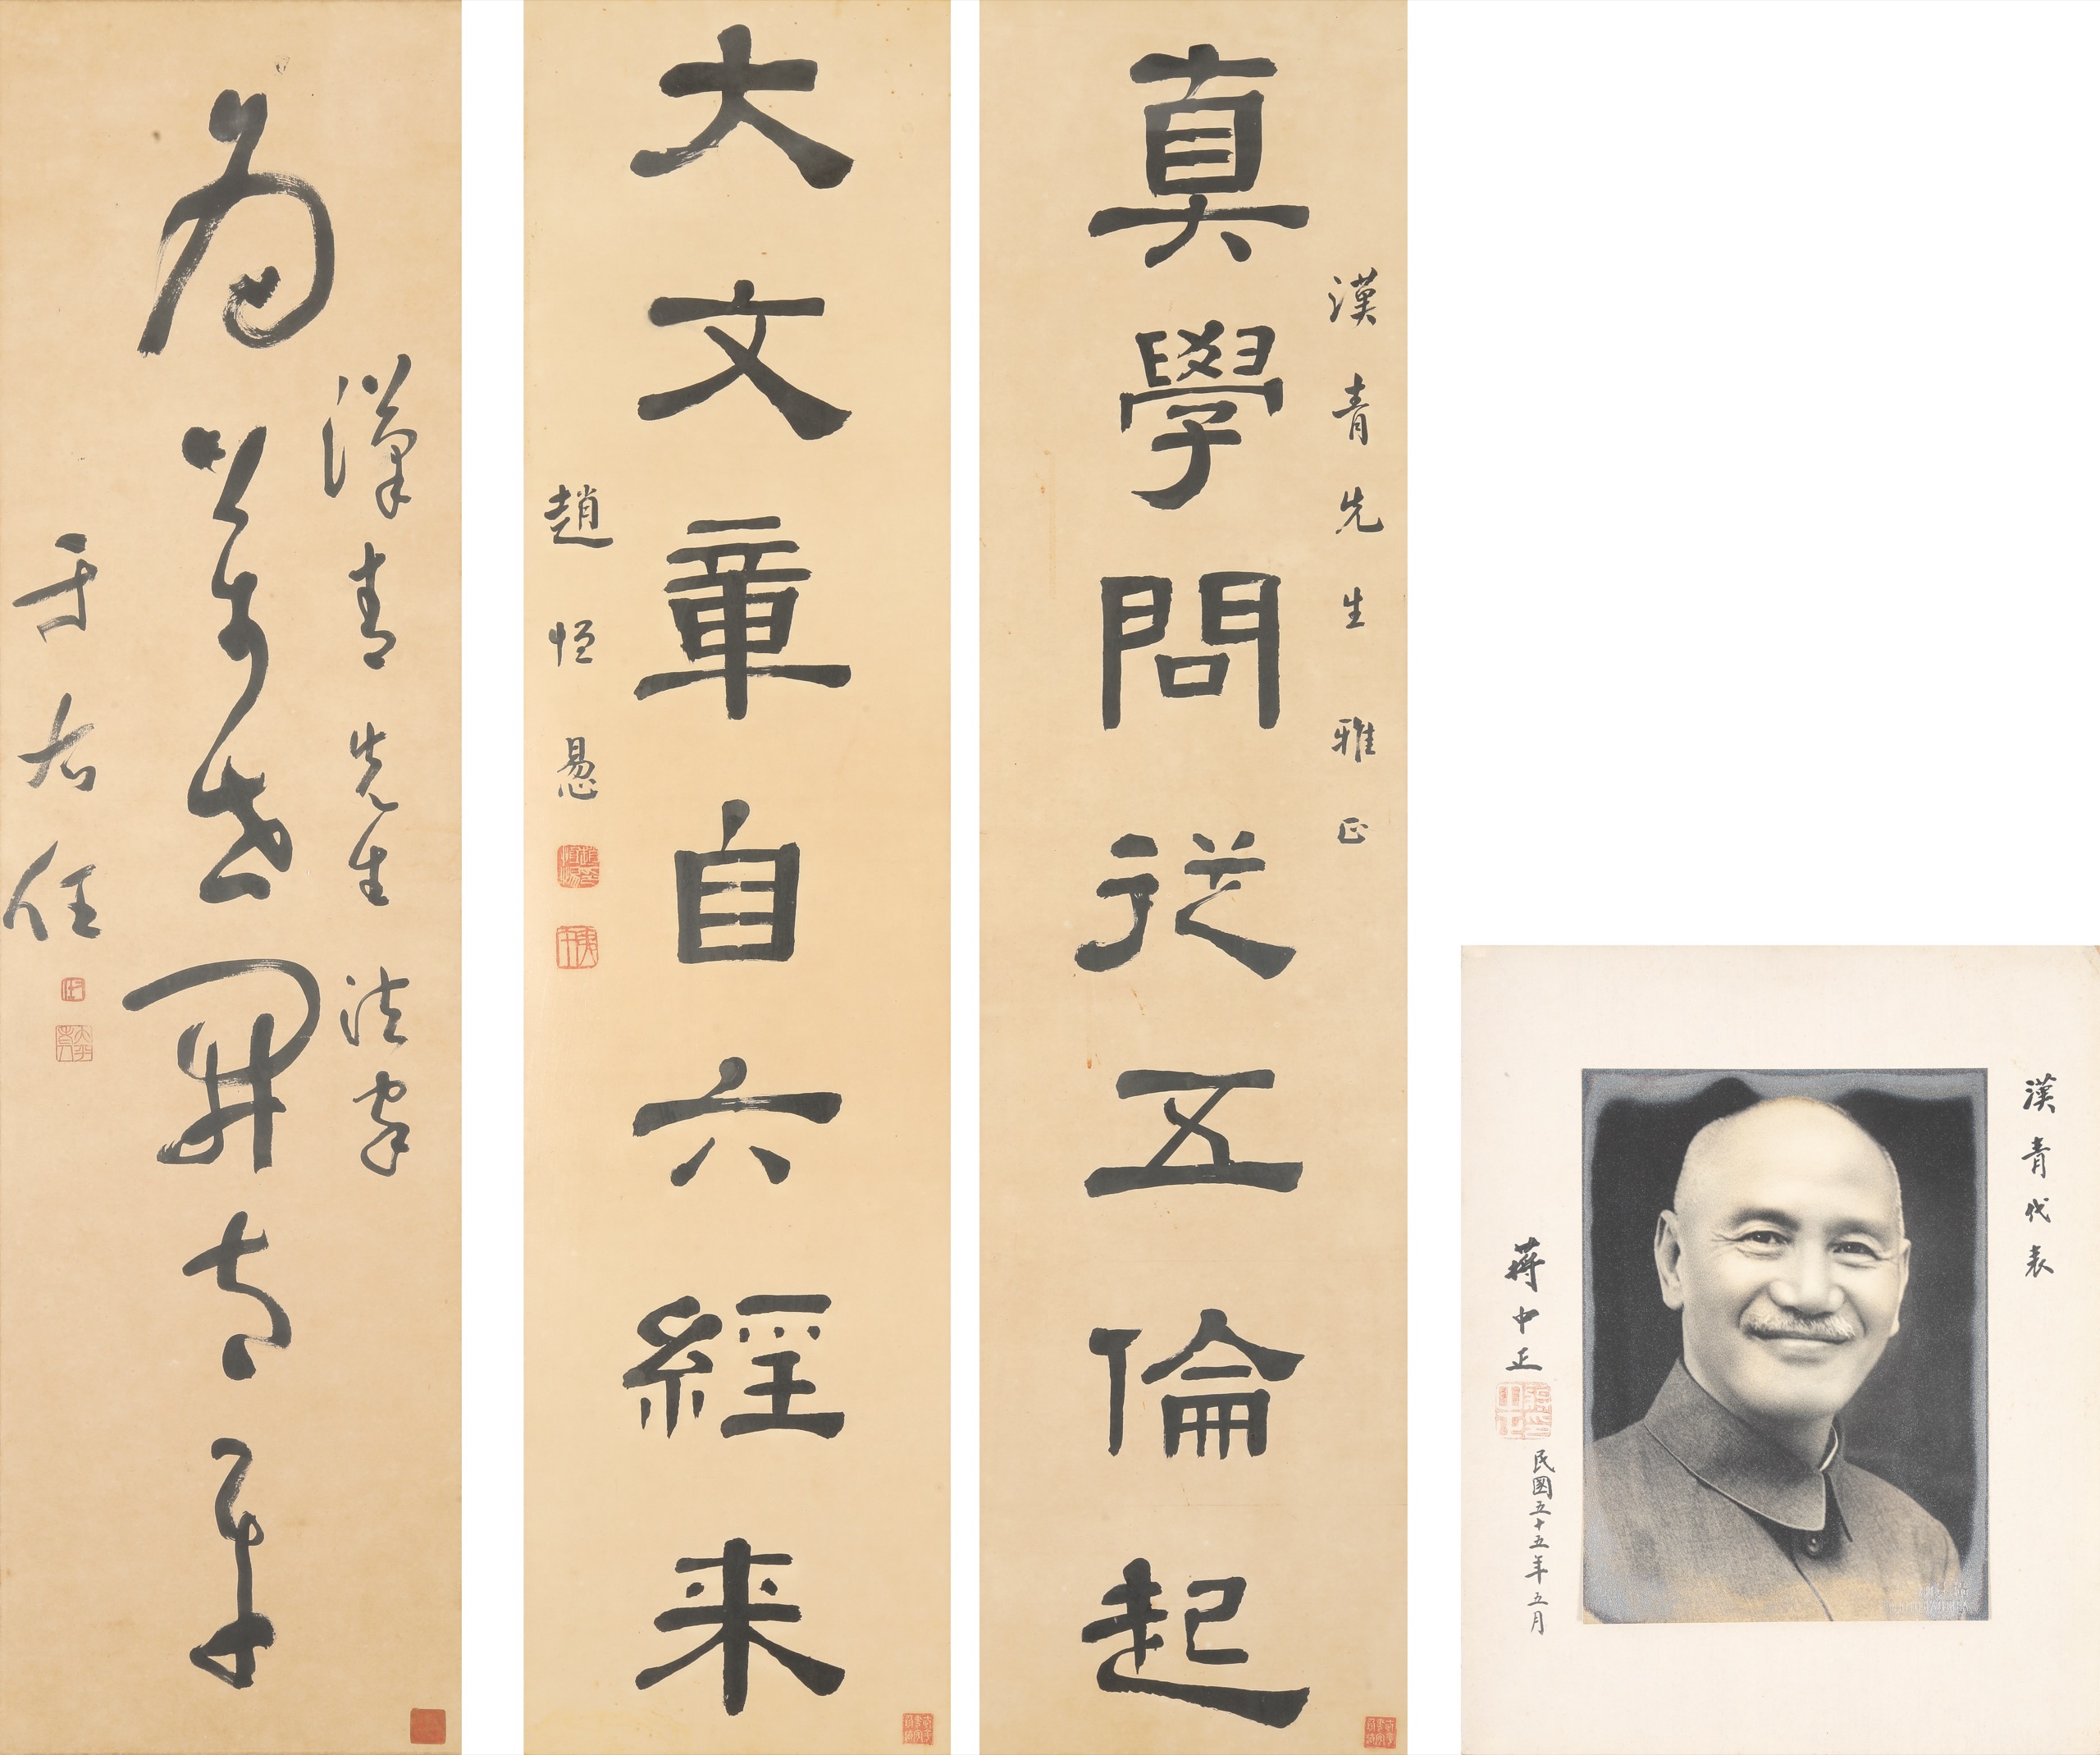 漢青代表
蔣中正
民國五十五年五月
漢青先生雅正
真學問從五倫起
大文章自六經来
趙恒惖
漢青先生法家
為萬世開太平
于右任